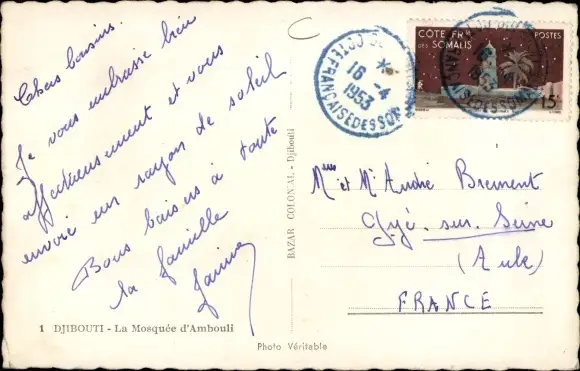 Chers cousins.
Je vous embrasse bien
affectueusement et vous
envoie un rayon de soleil
Bons baisers à toute
la famille
1 DJIBOUTI - La Mosquée d'Ambouli
BAZAR COLONIAL - Djibouti
Photo Véritable
CÔTE FRSE
DES SOMALIS
POSTES
15F
COTE FRANÇAISE DES SOM
16-4
1953
Mme et Mr André Breinent
Gyé. sur. Seine
(Aube)
FRANCE